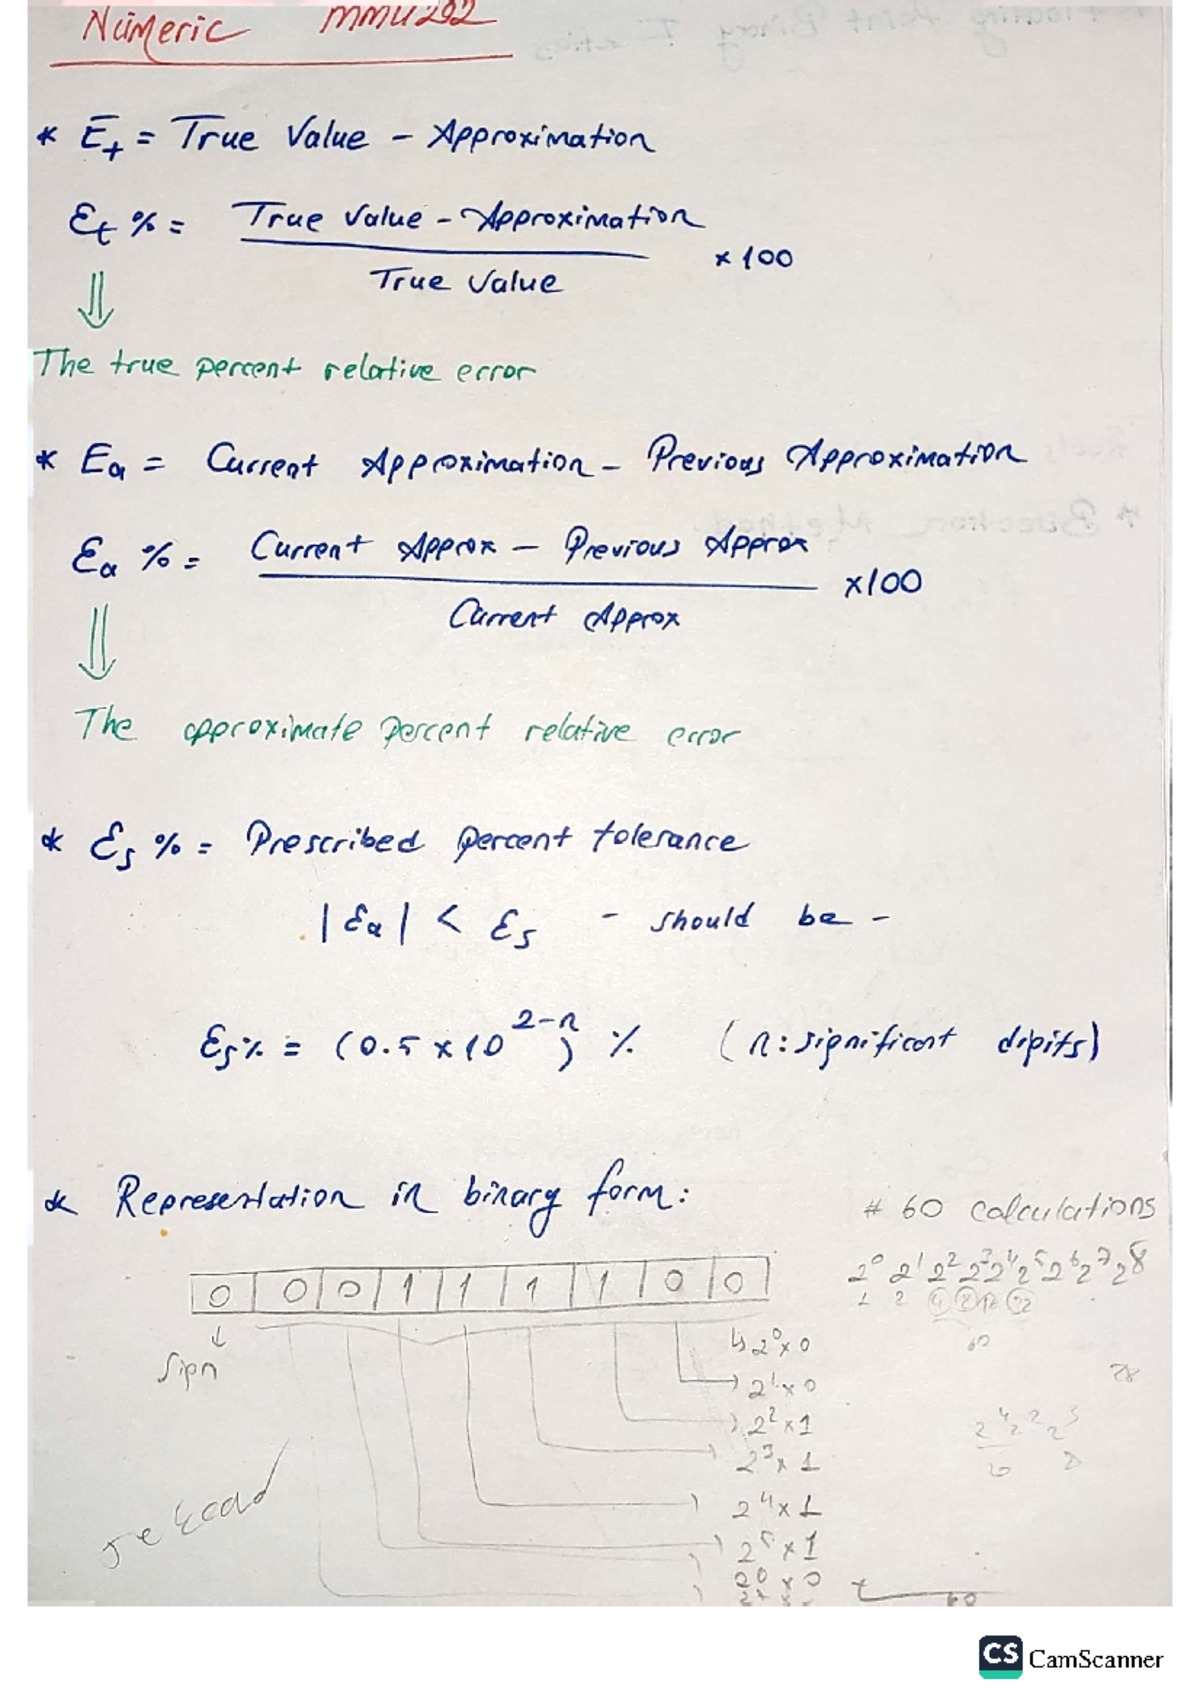 Numeric MMU202
* Et = True Value - Approximation
Et % = True Value - Approximation
x 100
True Value
The true percent relative error
* Ea = Current Approximation - Previous Approximation
Ea % = Current Approx - Previous Approx
x100
Current Approx
The approximate percent relative error
* Es % = Prescribed percent tolerance
|Ea| < Es - should be -
Es% = (0.5 x 10^2-n) % (n: significant digits)
* Representation in binary form:
# 60 calculations
2^0 2^1 2^2 2^3 2^4 2^5 2^6 2^7 2^8
0 0 0 1 1 1 1 0 0
Sign
2^0 x 0
2^1 x 0
2^2 x 1
2^3 x 1
2^4 x 1
2^5 x 1
2^6 x 0
60
CS CamScanner